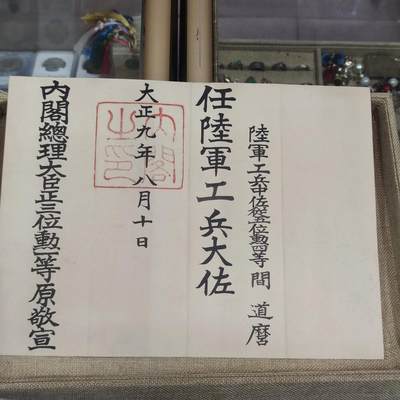 陸軍工兵中佐從五位勳四等 間 道磨
任陸軍工兵大佐
大正九年八月十日
内閣
之印
内閣總理大臣正三位勳一等原敬宣